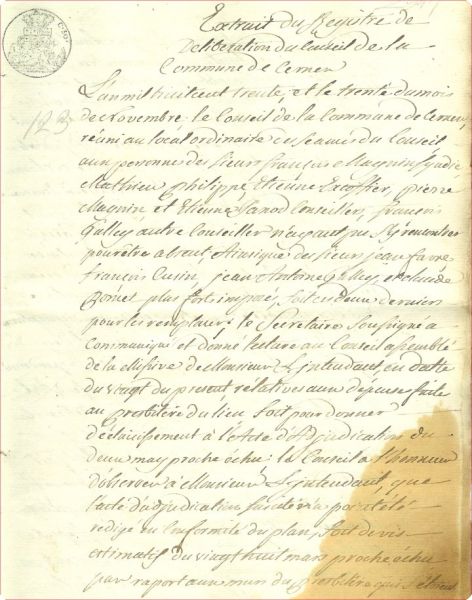 Extrait du Registre de
Déliberation du Conseil de la
Commune de Cernex
123
L'an mil huit cent trente, et le trente du mois
de Novembre, le Conseil de la Commune de Cernex
réuni au local ordinaire des séances du Conseil
aux personnes des Sieurs françois Magnin Syndic
Mathieu philippe Etienne Excoffier, pierre
Magnin et Etienne Conseiller, françois
Galley autre Conseiller n'ayant pu s'y rencontrer
pour être absent Ainsi que des Sieurs jean favre
françois Cusin, jean Antoine Galley et claude
plus fort imposés, soit ces deux derniers
pour les remplacer; le Secretaire Soussigné a
communiqué et donné lecture au Conseil assemblé
de la Missive de Monsieur L'intendant en datte
du vingt du present, relatives aux dépense faite
au presbitère du lieu Soit pour donner
d'éclaircissement à l'Acte d'Adjudication du
deux may proche échu: la Conseil a l'honneur
d'observer à Monsieur L'intendant, que
l'acte d'adjudication a été
redigé en Conformité du plan, Soit devis
estimatif du vingt huit mars proche échu
par raport aux murs du Presbitère qui